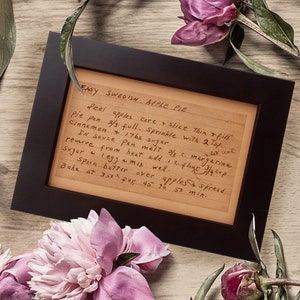 EASY SWEDISH APPLE PIE
Peel apples core & slice thin & fill
pie pan 2/3 full. Sprinkle with 2 tsp
cinnamon & 1 Tbs sugar
In sauce pan melt 3/4 c. margarine
remove from heat add 1 c. flour
sugar & 1 egg & mix well.
Spoon batter over apples & spread
Bake at 350° for 45 to 50 min.